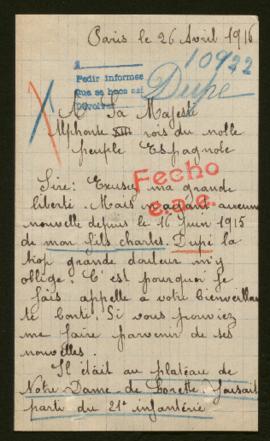 Paris le 26 Avril 1916
10922
Pedir informes
que se hace así
Dupé
A Sa Majesté
Alphonse XIII rois du noble
peuple Espagnole
Fecho
Sire: Excusez ma grande
liberté. Mais n'ayant aucune
nouvelle depuis le 16 Juin 1915
de mon fils charles. Dupé la
trop grande douleur m'y
oblige. C'est pourquoi je
fais appelle à votre bienveillan
te bonté. Si vous pouviez
me faire parvenir de ses
nouvelles.
Il était au plateau de
Notre Dame de Lorette faisait
partie du 21e infanterie